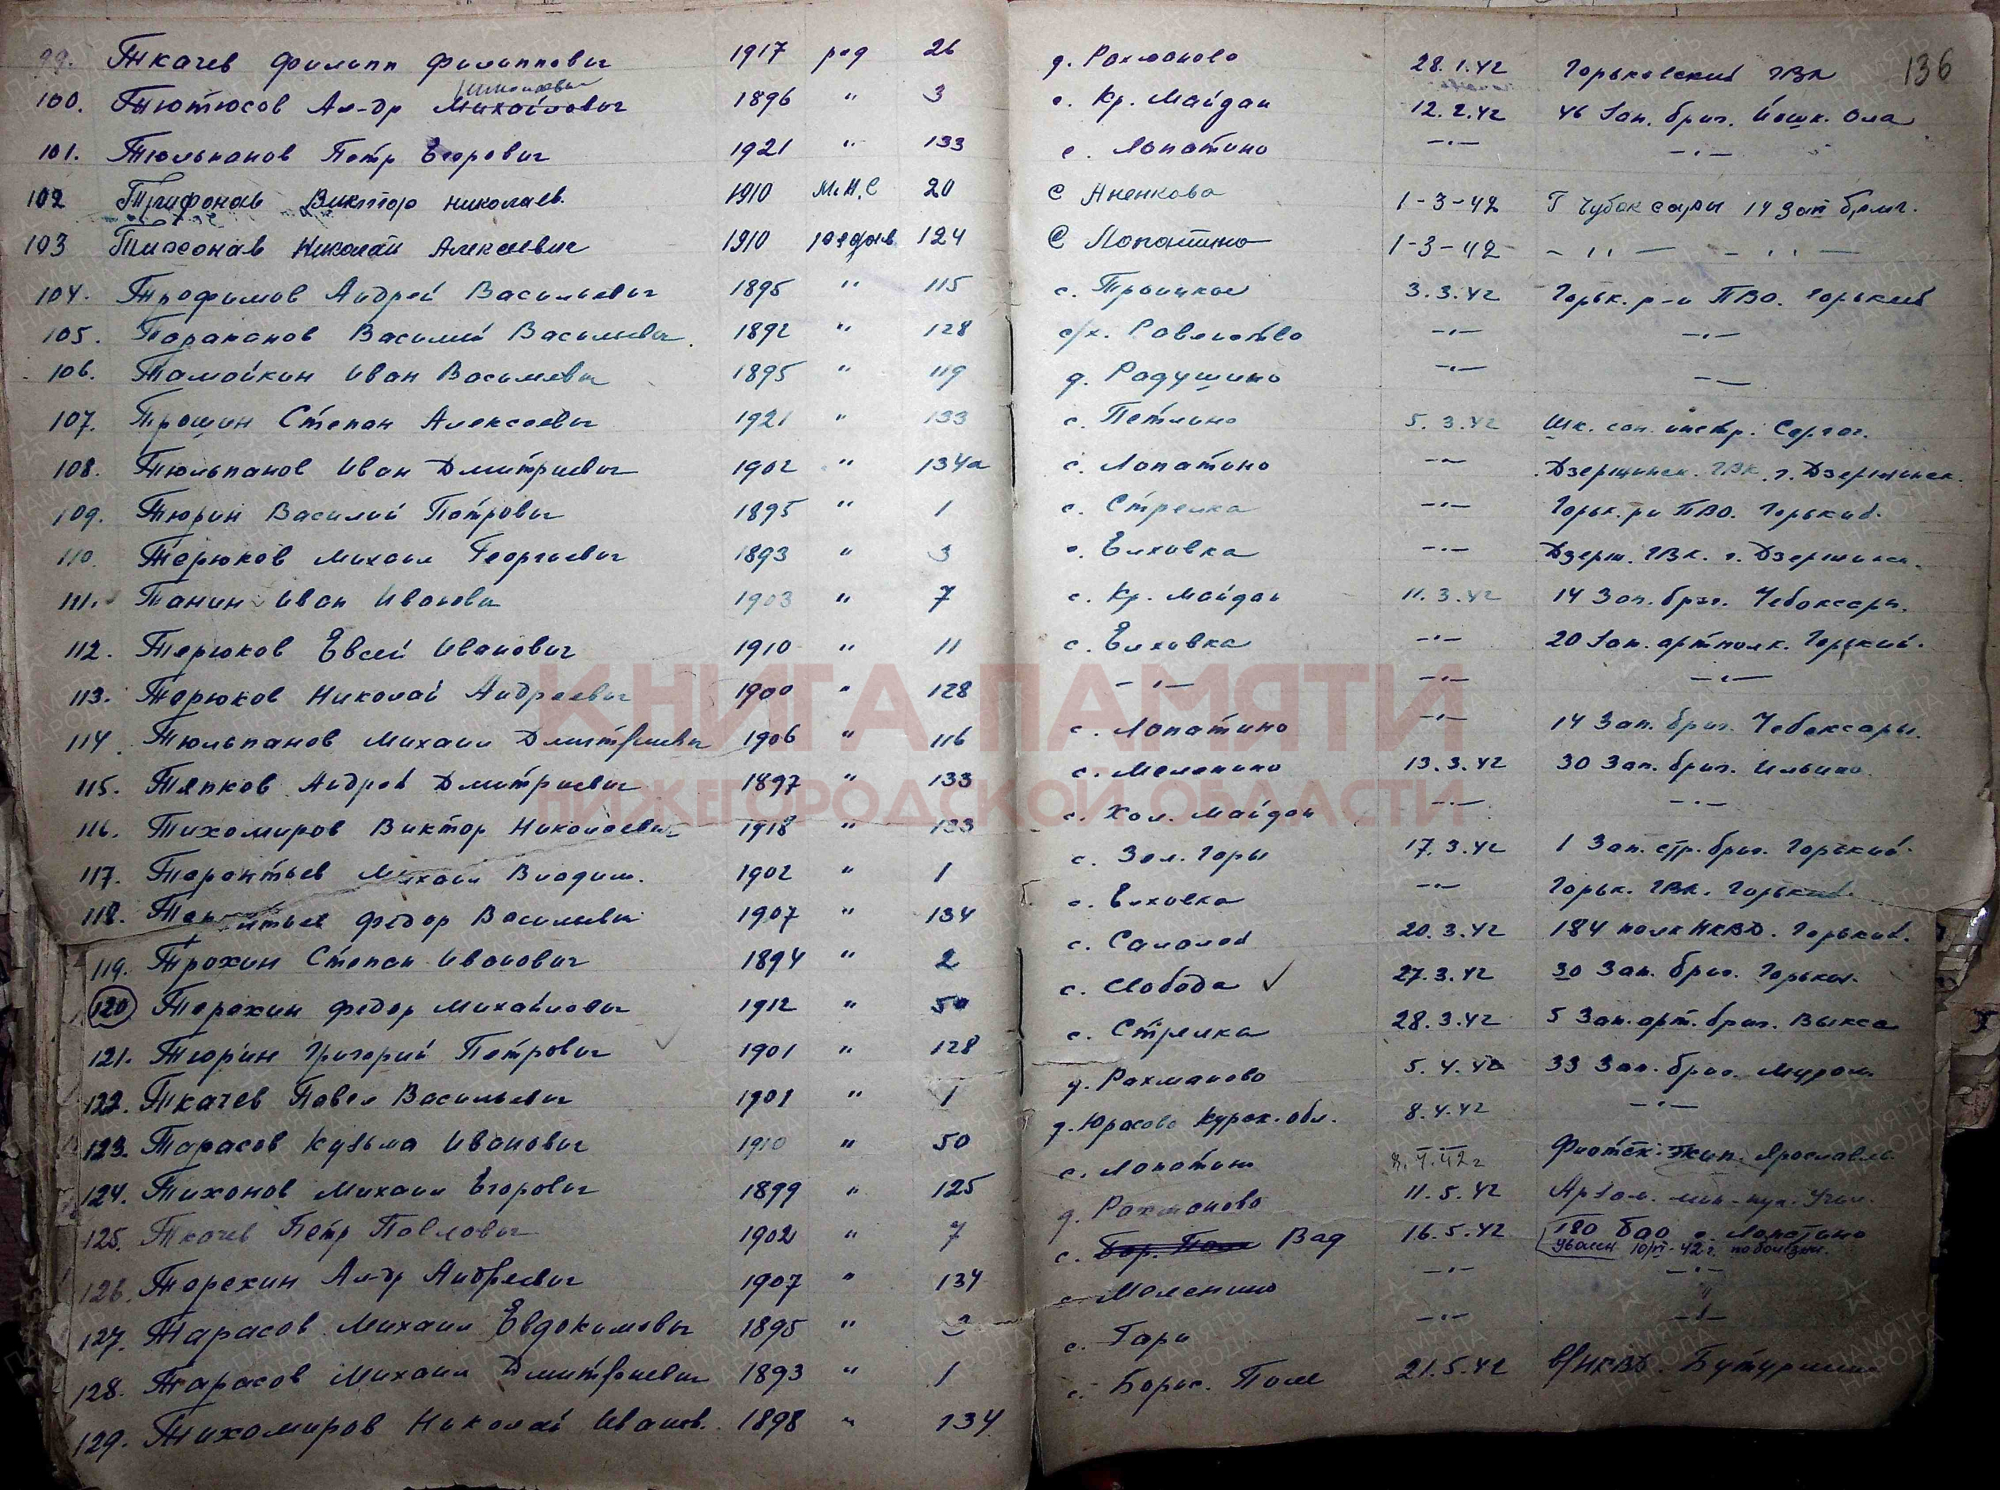 99. Ткачев Филипп Филиппович 1917 ряд 26 д. Рахманово 28.1.42 Горьковский ГВК 136
100. Тютюсов Ал-др Михайлович 1896 " 3 с. Кр. Майдан 12.2.42 46 Зап. бриг. Йошк. Ола
101. Тюльпанов Петр Егорович 1921 " 133 с. Лопатино —"— —"—
102 Трифонов Виктор Николаев. 1910 М.Н.С 20 С Аненкова 1-3-42 Г Чубоксары 14 Зап бриг.
103 Тихонав Николай Алексеевич 1910 рядов 124 С Лопатино 1-3-42 — " — — " —
104. Трофимов Андрей Васильевич 1895 " 115 с. Троицкое 3.3.42 Горьк. р-н ПВО. Горький
105. Тараканов Василий Васильевич 1892 " 128 с/х. Равенство —"— —"—
106. Тамойкин Иван Васильевич 1895 " 119 д. Радушино —"— —"—
107. Трошин Степан Алексеевич 1921 " 133 с. Петлино 5.3.42 Шк. сан. инстр. Сергач.
108. Тюльпанов Иван Дмитриевич 1902 " 134а с. Лопатино —"— Дзержинск. ГВК. г. Дзержинск.
109. Тюрин Василий Петрович 1895 " 1 с. Стрелка —"— Горьк. р-н ПВО. Горький.
110. Терюков Михаил Георгиевич 1893 " 3 с. Елховка —"— Дзерж. ГВК. г. Дзержинск.
111. Танин Иван Иванович 1903 " 7 с. Кр. Майдан 11.3.42 14 Зап. бриг. Чебоксары.
112. Терюков Евсей Иванович 1910 " 11 с. Елховка —"— 20 Зап. артполк. Горький.
113. Терюков Николай Андреевич 1900 " 128 —"— —"— —"—
114. Тюльпанов Михаил Дмитриевич 1906 " 116 с. Лопатино —"— 14 Зап. бриг. Чебоксары.
115. Тяпков Андрей Дмитриевич 1897 " 133 с. Меленино 13.3.42 30 Зап. бриг. Ильино.
116. Тихомиров Виктор Николаевич 1918 " 133 с. Хол. Майдан —"— —"—
117. Терентьев Михаил Владим. 1902 " 1 с. Зел. Горы 17.3.42 1 Зап. стр. бриг. Горький.
118. Терентьев Федор Васильевич 1907 " 134 с. Елховка —"— Горьк. ГВК. Горький.
119. Трохин Степан Иванович 1894 " 2 с. Салалей 20.3.42 184 полк НКВД. Горький.
120 Терехин Федор Михайлович 1912 " 50 с. Слобода 27.3.42 30 Зап. бриг. Горький.
121. Тюрин Григорий Петрович 1901 " 128 с. Стрелка 28.3.42 5 Зап. арт. бриг. Выкса
122. Ткачев Павел Васильевич 1901 " 1 д. Рахманово 5.4.42 33 Зап. бриг. Муром
123. Тарасов Кузьма Иванович 1910 " 50 д. Юрасово Курск. обл. 8.4.42 —"—
124. Тихонов Михаил Егорович 1899 " 125 с. Лопатино 8.V.42г Флотск. экип. Ярославль
125. Ткачев Петр Павлович 1902 " 7 д. Рахманово 11.5.42
126. Терехин Ал-др Андреевич 1907 " 134 с. Вад 16.5.42 180 бао с. Лопатино
уволен 10/VI-42 г. по болезни.
127. Тарасов Михаил Евдокимович 1895 " с. Меленино —"— —"—
128. Тарасов Михаил Дмитриевич 1893 " 1 с. Гари —"— —"—
129. Тихомиров Николай Иванов. 1898 " 134 с. Борис. Поле 21.5.42 в/НКВД. Бутурлино
КНИГА ПАМЯТИ
НИЖЕГОРОДСКОЙ ОБЛАСТИ